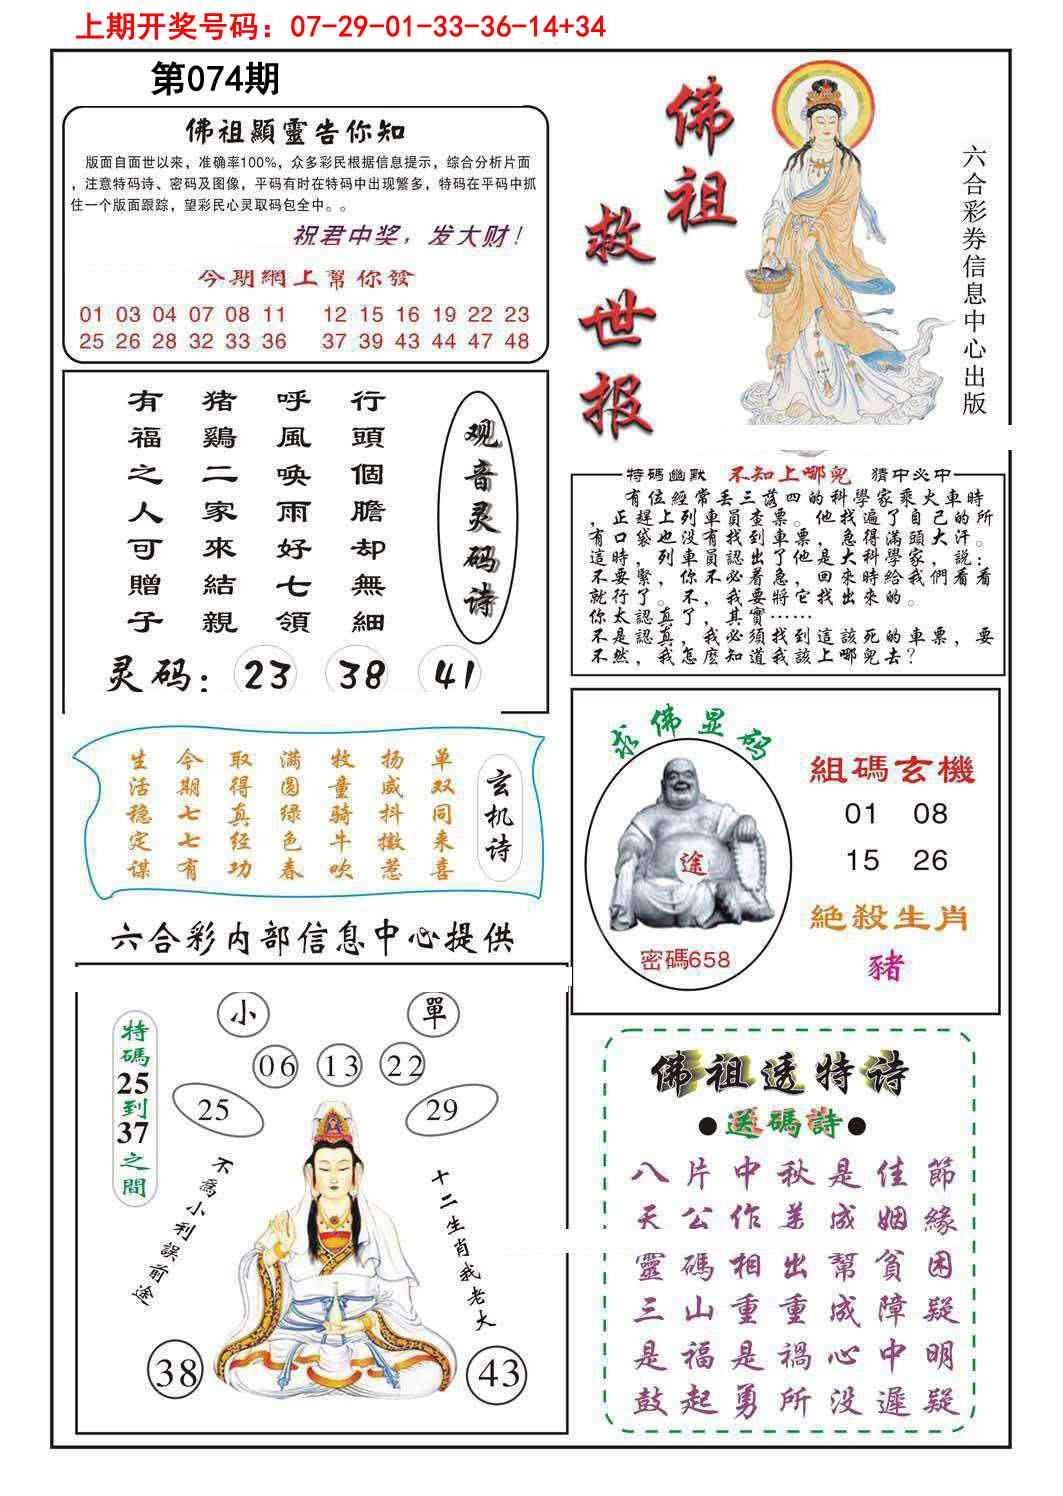 上期开奖号码：07-29-01-33-36-14+34
第074期
佛祖顯靈告你知
版面自面世以来，准确率100%，众多彩民根据信息提示，综合分析片面
，注意特码诗、密码及图像，平码有时在特码中出现繁多，特码在平码中抓
住一个版面跟踪，望彩民心灵取码包全中。。
祝君中奖，发大财！
今期網上幫你發
01 03 04 07 08 11 12 15 16 19 22 23
25 26 28 32 33 36 37 39 43 44 47 48
佛祖
救世报
六合彩券信息中心出版
观音灵码诗
行頭個膽却無細
呼風唤雨好七領
猪鷄二家來結親
有福之人可贈子
灵码：23 38 41
特碼幽默 不知上哪兒 猜中必中
有位經常丢三落四的科學家乘火車時
，正趕上列車員查票。他找遍了自己的所
有口袋也没有找到車票，急得滿頭大汗。
這時，列車員認出了他是大科學家，説：
不要緊，你不必着急，回來時給我們看看
就行了。不，我要將它找出來的。
你太認真了，其實……
不是認真，我必須找到這該死的車票，要
不然，我怎麽知道我該上哪兒去？
玄机诗
单双同来喜
扬威抖擞惹
牧童骑牛吹
满圆绿色春
取得真经功
今期七七有
生活稳定谋
求佛显码
途
密碼658
組碼玄機
01 08
15 26
絕殺生肖
豬
六合彩内部信息中心提供
小 單
06 13 22
25 29
特碼25到37之間
不爲小利誤前途
十二生肖我老大
38 43
佛祖透特诗
●送碼詩●
八片中秋是佳節
天公作美成姻緣
靈碼相出幫貧困
三山重重成障疑
是福是禍心中明
鼓起勇所没遲疑